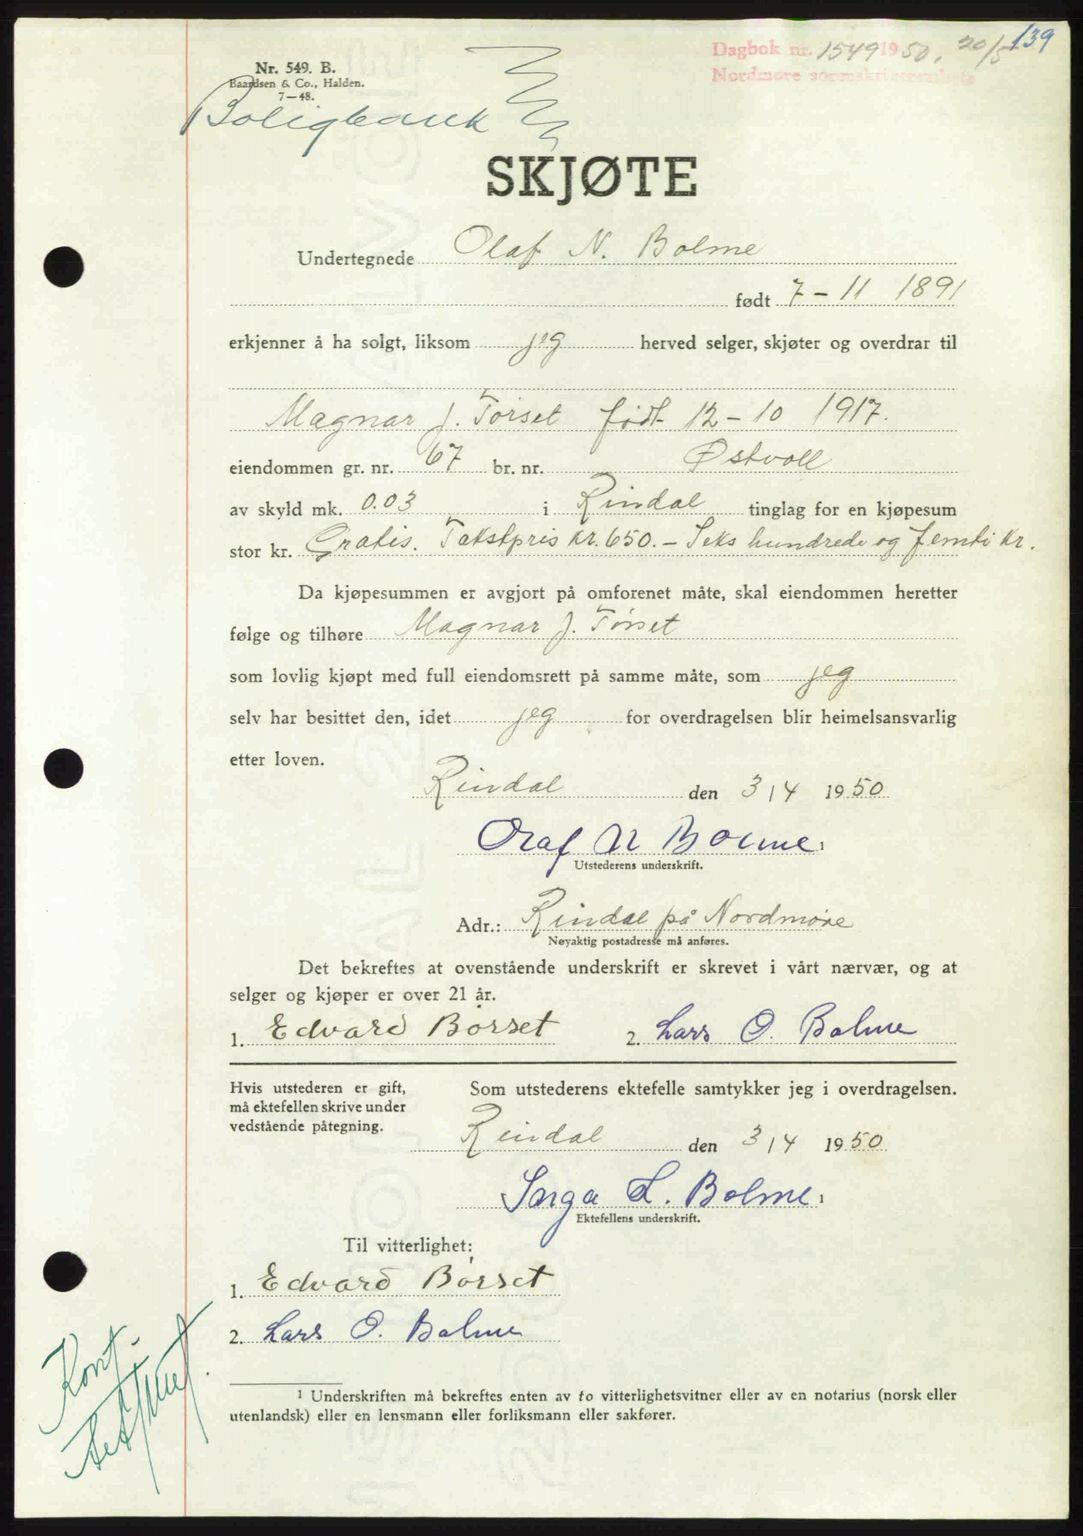 139
Dagbok nr. 1549 1950, 20/5
Nordmøre sorenskriverembete
Nr. 549. B.
Baardsen & Co., Halden.
7—48.
Boligbank
SKJØTE
Undertegnede Olaf N. Bolme
født 7-11 1891
erkjenner å ha solgt, liksom jeg herved selger, skjøter og overdrar til
Magnar J. Tørset født 12-10 1917.
eiendommen gr. nr. 67 br. nr. Østvoll
av skyld mk. 0.03 i Rindal tinglag for en kjøpesum
stor kr. Gratis. Takstpris kr. 650.- Seks hundrede og femti kr.
Da kjøpesummen er avgjort på omforenet måte, skal eiendommen heretter
følge og tilhøre Magnar J. Tørset
som lovlig kjøpt med full eiendomsrett på samme måte, som jeg
selv har besittet den, idet jeg for overdragelsen blir heimelsansvarlig
etter loven.
Rindal den 3/4 1950
Olaf N Bolme ¹
Utstederens underskrift.
Adr.: Rindal på Nordmøre
Nøyaktig postadresse må anføres.
Det bekreftes at ovenstående underskrift er skrevet i vårt nærvær, og at
selger og kjøper er over 21 år.
1. Edvard Børset 2. Lars O. Bolme
Hvis utstederen er gift,
må ektefellen skrive under
vedstående påtegning.
Som utstederens ektefelle samtykker jeg i overdragelsen.
Rindal den 3/4 1950
L. Bolme ¹
Ektefellens underskrift.
Til vitterlighet:
1. Edvard Børset
2. Lars O. Bolme
Kont.
¹ Underskriften må bekreftes enten av to vitterlighetsvitner eller av en notarius (norsk eller
utenlandsk) eller en lensmann eller forliksmann eller sakfører.